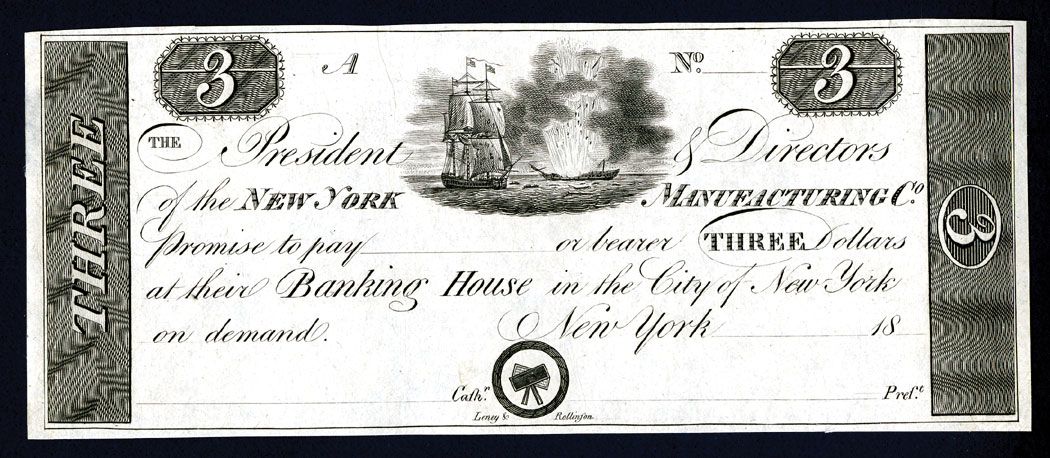 3 A No. 3
THE President & Directors
of the NEW YORK MANUFACTURING Co.
Promise to pay or bearer THREE Dollars
at their Banking House in the City of New York
on demand. New York 18
Cashr. Prest.
Leney & Rollinson.
THREE
3